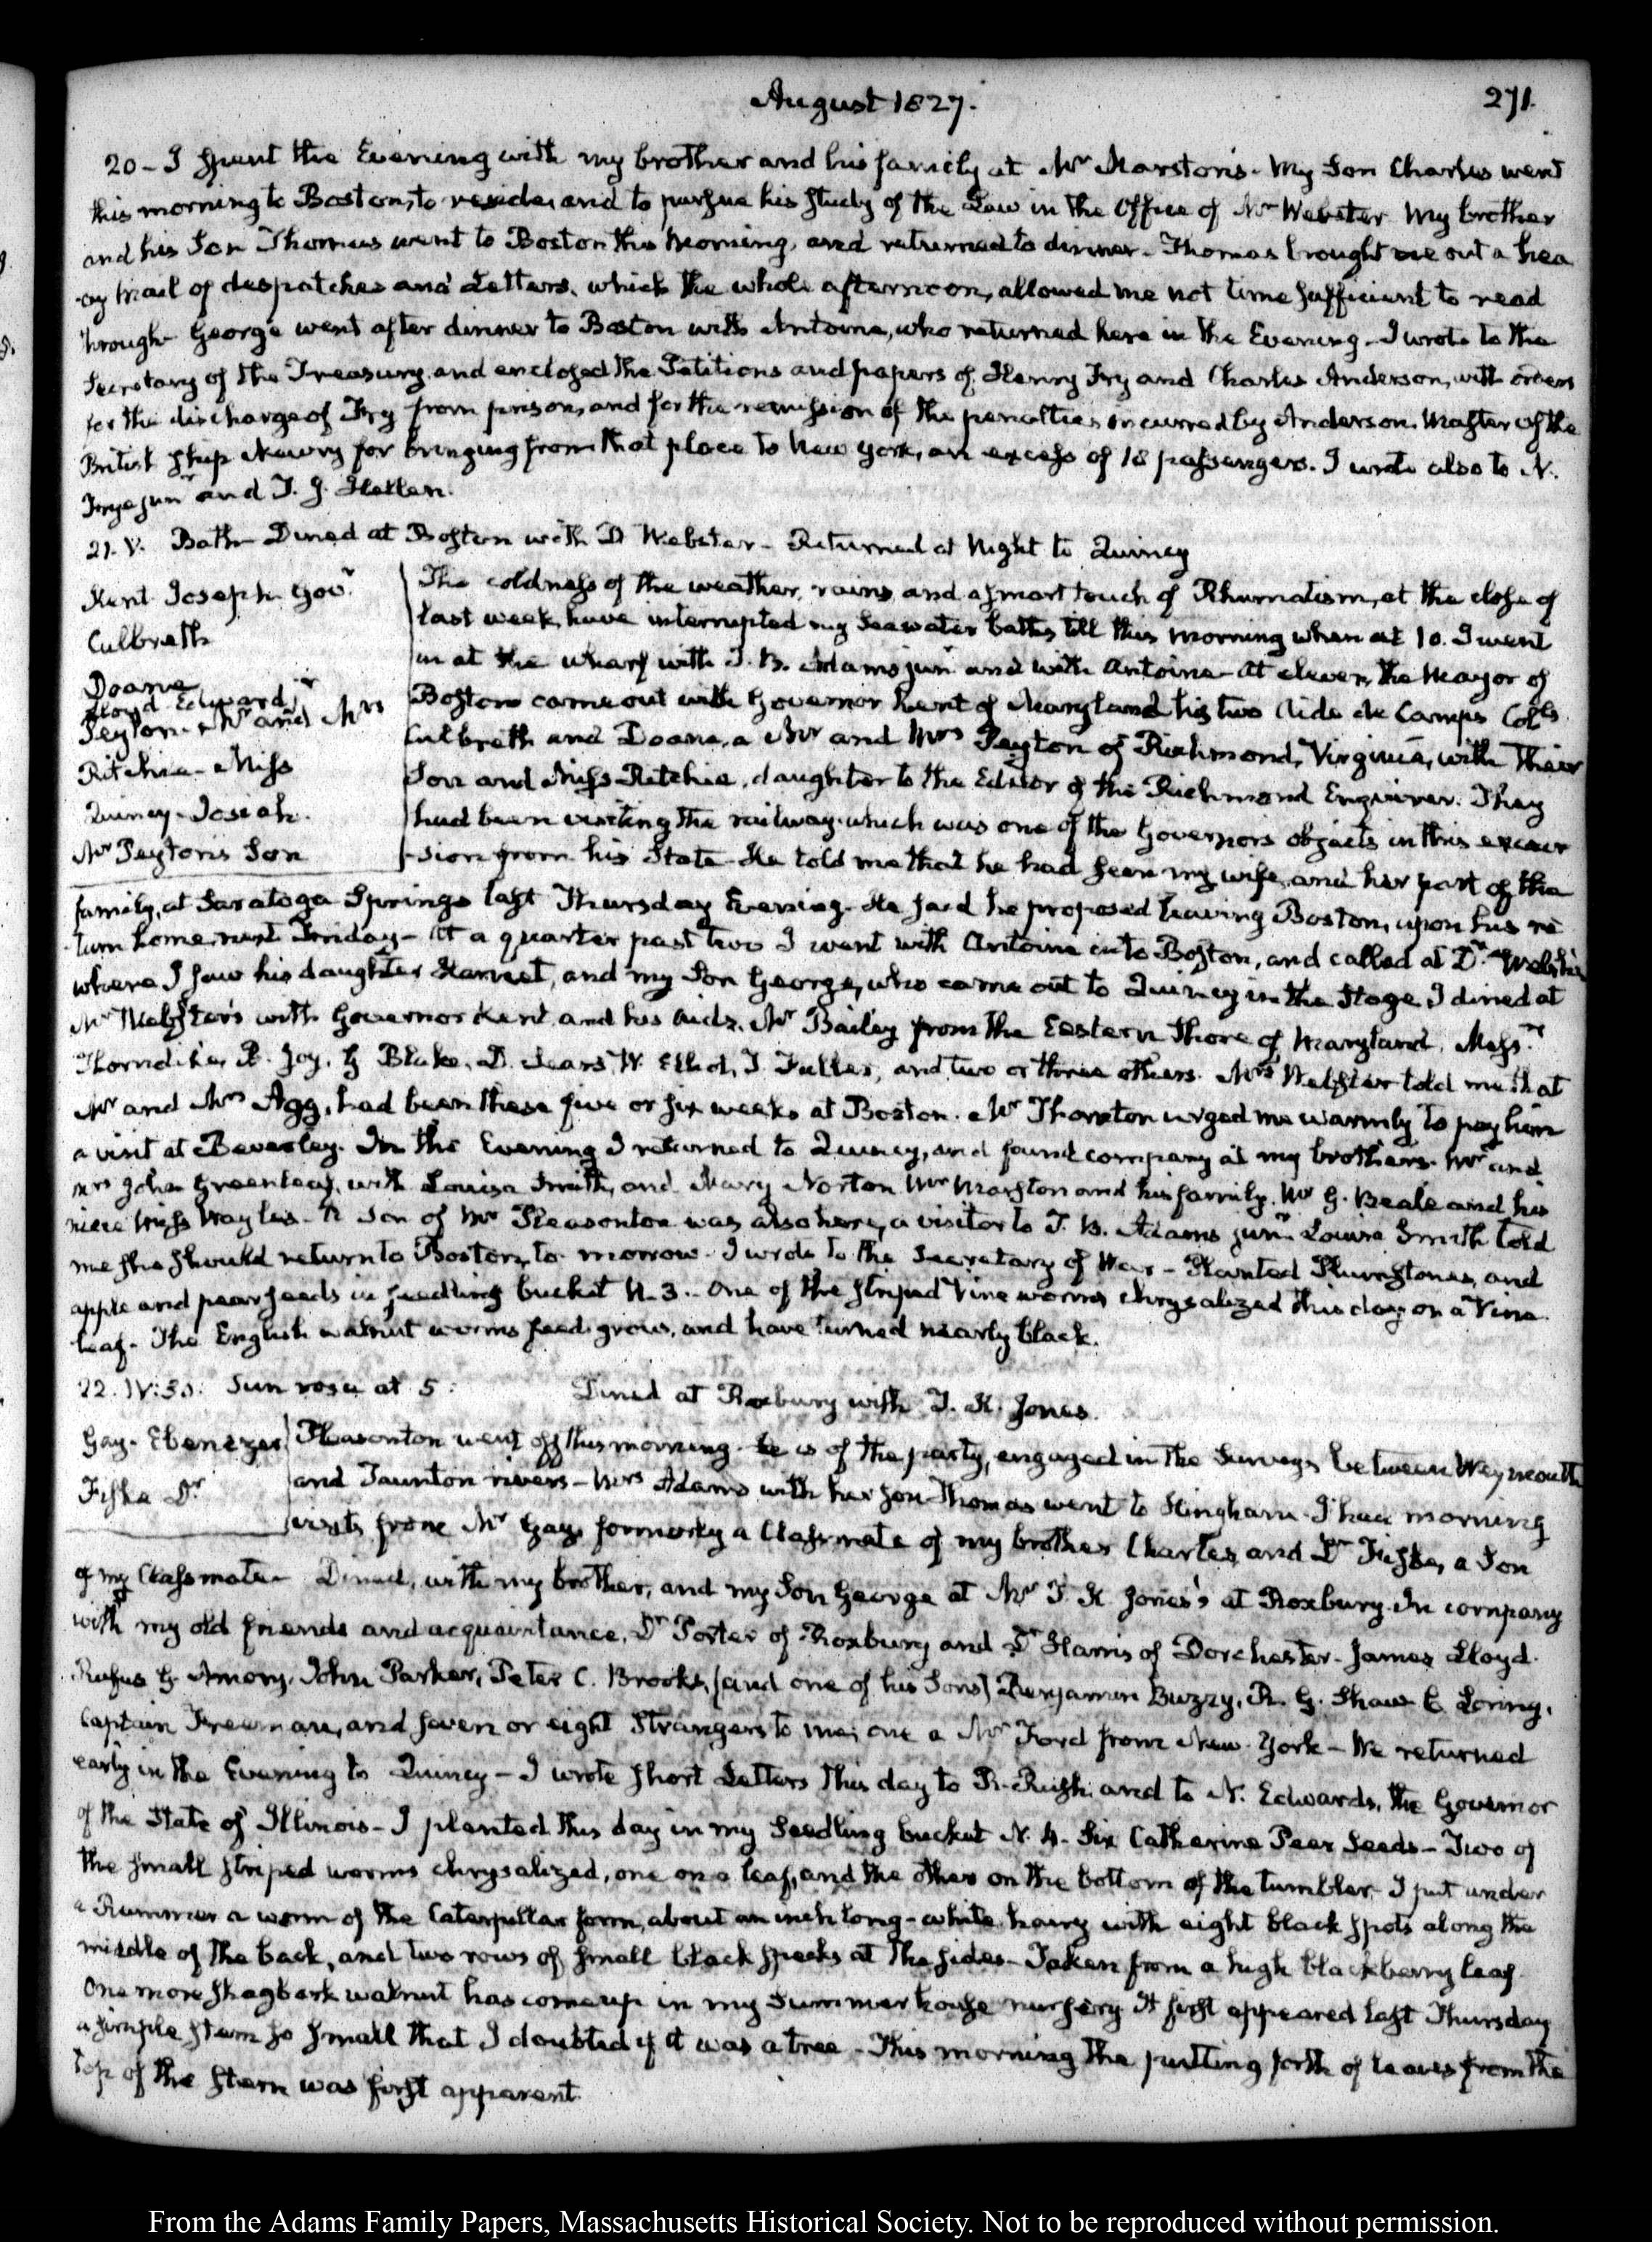 August 1827.
271.
20 - I spent the Evening with my brother and his family at Mr Marston's. My Son Charles went
this morning to Boston, to reside, and to pursue his study of the Law in the Office of Mr Webster. My brother
and his Son Thomas went to Boston this morning, and returned to dinner. Thomas brought me out a hea
-vy mail of despatches and Letters, which the whole afternoon, allowed me not time sufficient to read
through. George went after dinner to Boston with Antoine, who returned here in the Evening. I wrote to the
Secretary of the Treasury, and enclosed the Petitions and papers of Henry Fry and Charles Anderson, with orders
for the discharge of Fry from prison, and for the remission of the penalties incurred by Anderson Master of the
British ship Newry for bringing from that place to New York, an excess of 18 passengers. I wrote also to N.
Frye junr and T. J. Hellen.
21. V. Bath - Dined at Boston with D Webster - Returned at Night to Quincy
Kent Joseph Govr
Culbreth
Doane
Lloyd Edward jr
Peyton - Mr and Mrs
Ritchie - Miss
Quincy - Josiah.
Mr Peyton's Son
The coldness of the weather, rains, and a smart touch of Rhumatism, at the close of
last week, have interrupted my Seawater baths till this morning when at 10. I went
in at the wharf with J. B. Adams junr and with Antoine - At eleven, the Mayor of
Boston came out with Governor Kent of Maryland his two Aids de Camps Cols
Culbreth and Doane, a Mr and Mrs Peyton of Richmond, Virginia, with their
Son and Miss Ritchie, daughter to the Editor of the Richmond Enquirer. They
had been visiting the railway which was one of the Governors objects in this excur
-sion from his State. He told me that he had seen my wife, and her part of the
family, at Saratoga Springs last Thursday Evening. He said he proposed leaving Boston, upon his re
turn home, next Friday - At a quarter past two I went with Antoine into Boston, and called at Dr Welsh's
where I saw his daughter Harriet, and my Son George, who came out to Quincy in the Stage. I dined at
Mr Webster's with Governor Kent, and his Aids, Mr Bailey from the Eastern Shore of Maryland, Messrs
Thorndike, B. Joy, G Blake, D. Sears, W. Elliot, T Fuller, and two or three others. Mrs Webster told me that
Mr and Mrs Agg, had been these five or six weeks at Boston. Mr Thornton urged me warmly to pay him
a visit at Beverley. In the Evening I returned to Quincy, and found company at my brother's. Mr and
Mrs John Greenleaf, with Louisa Smith, and Mary Norton Mr Marston and his family. Mr G. Beale and his
niece Miss Wayles. A Son of Mr Pleasonton was also here, a visitor to J. B. Adams junr. Louisa Smith told
me she should return to Boston, to morrow. I wrote to the Secretary of War - Planted Plumstones, and
apple and pear seeds in seedling bucket N. 3. - One of the striped Vine worms chrysalized this day on a Vine
leaf. The English walnut worms feed, grow, and have turned nearly black.
22. IV:30: Sun rose at 5: Dined at Roxbury with T. K. Jones.
Gay - Ebenezer
Fiske Dr
Pleasonton went off this morning. He is of the party, engaged in the Survey, between Weymouth
and Taunton rivers - Mrs Adams with her Son Thomas went to Hingham. I had morning
visits from Mr Gay, formerly a Classmate of my brother Charles, and Dr Fiske, a Son
of my Classmate - Dined, with my brother, and my Son George at Mr T. K Jones's at Roxbury. In company
with my old friends and acquaintance, Dr Porter of Roxbury and Dr Harris of Dorchester - James Lloyd.
Rufus G. Amory, John Parker, Peter C. Brooks, (and one of his Sons) Benjamin Buzzy, R. G. Shaw C Loring,
Captain Freeman, and seven or eight Strangers to me; one a Mr Ford from New-York - We returned
early in the Evening to Quincy - I wrote short Letters this day to R. Rush, and to N. Edwards, the Governor
of the State of Illinois - I planted this day in my Seedling bucket N. 4. Six Catherine Pear Seeds - Two of
the small striped worms chrysalized, one on a leaf, and the other on the bottom of the tumbler. I put under
a Rummer a worm of the Caterpillar form, about an inch long - white, hairy with eight black spots along the
middle of the back, and two rows of small black specks at the sides - Taken from a high blackberry leaf.
One more shagbark walnut has come up in my Summer house nursery. It first appeared last Thursday
a simple stem so small that I doubted if it was a tree - This morning the putting forth of leaves from the
top of the stem was first apparent.
From the Adams Family Papers, Massachusetts Historical Society. Not to be reproduced without permission.